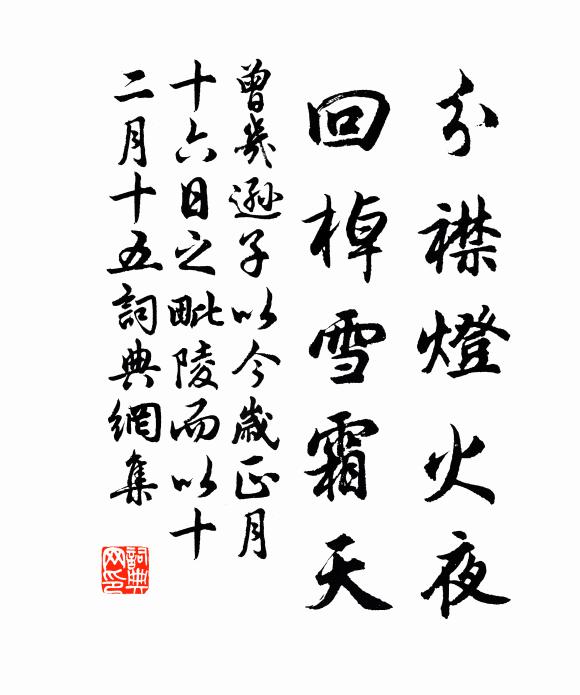 分襟燈火夜
回棹雪霜天
曾幾遜子以今歲正月
十六日之毗陵而以十
二月十五詞典網集
詞典网印